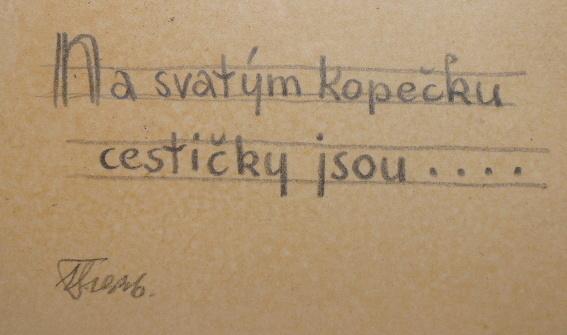 Na svatým kopečku
cestičky jsou . . . .